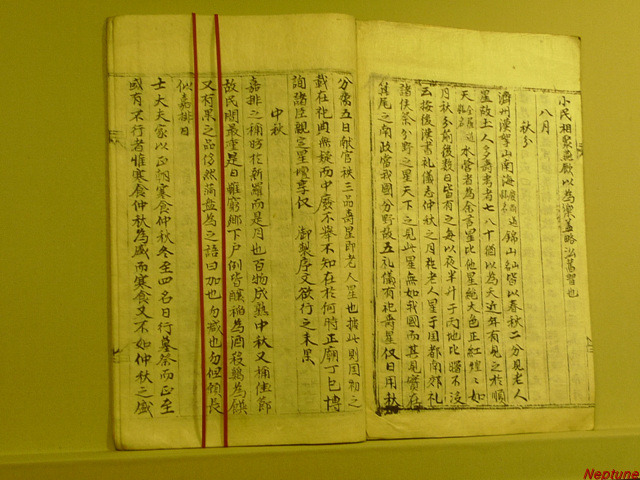 小民相聚魚歡以為樂盖略沿舊習也
八月
秋分
濟州漢拏山南海錦山皆以春秋二分見老人
星故土人多壽考者七八十猶以為夭近年有見之於順
天水營者為余言星比他星絕大色正紅煌煌如
月秋分前後數日皆有之每以夜半升于丙地比曙不沒
云按後漢書礼儀志仲秋之月祀老人星于國都南郊礼
諸侯祭分野之星天下之見此星無如我國而其見實在
箕尾之南政當我國分野故五礼儀有祀壽星仪日用秋
分齋五日献官秩三品壽星即老人星也據此則國初之
載在祀典無疑而中廢不舉不知在於何時正廟丁巳博
詢諸臣親定星壇享仪 御製序文欲行之未果
中秋
嘉排之稱昉於新羅而是月也百物成熟中秋又稱佳節
故民間最重是日雖窮鄉下戶例皆釀稻為酒殺鷄為饌
又肴果之品侈然滿盤為之語曰加也勿减也勿但願長
似嘉排日
士大夫家以正朝寒食仲秋冬至四名日行墓祭而正至
或有不行者惟寒食仲秋為盛而寒食又不如仲秋之盛
Neptune